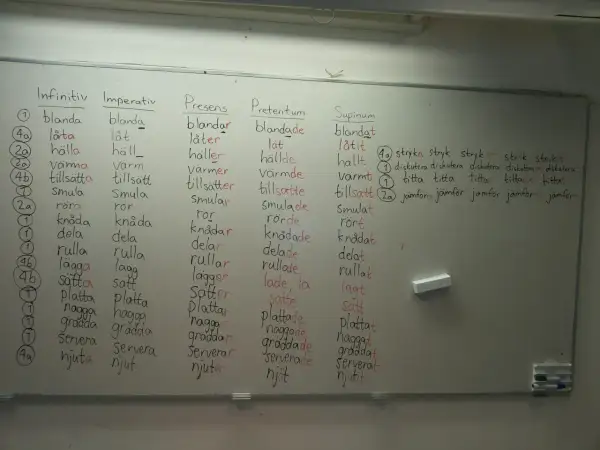 Infinitiv Imperativ Presens Preteritum Supinum
① blanda blanda blandar blandade blandat
④a låta låt låter lät låtit
②a hälla häll häller hällde hällt
②a värma värm värmer värmde värmt
④b tillsätta tillsätt tillsätter tillsatte tillsatt
① smula smula smular smulade smulat
②a röra rör rör rörde rört
① knåda knåda knådar knådade knådat
① dela dela delar delade delat
① rulla rulla rullar rullade rullat
④b lägga lägg lägger lade, la lagt
④b sätta sätt sätter satte satt
① platta platta plattar plattade plattat
① nagga nagga naggar naggade naggat
① grädda grädda gräddar gräddade gräddat
① servera servera serverar serverade serverat
④a njuta njut njuter njöt njutit
④a stryka stryk stryk
① diskutera diskutera diskutera
① titta titta titta titta titta
②a jämföra jämför jämför jämför jämför